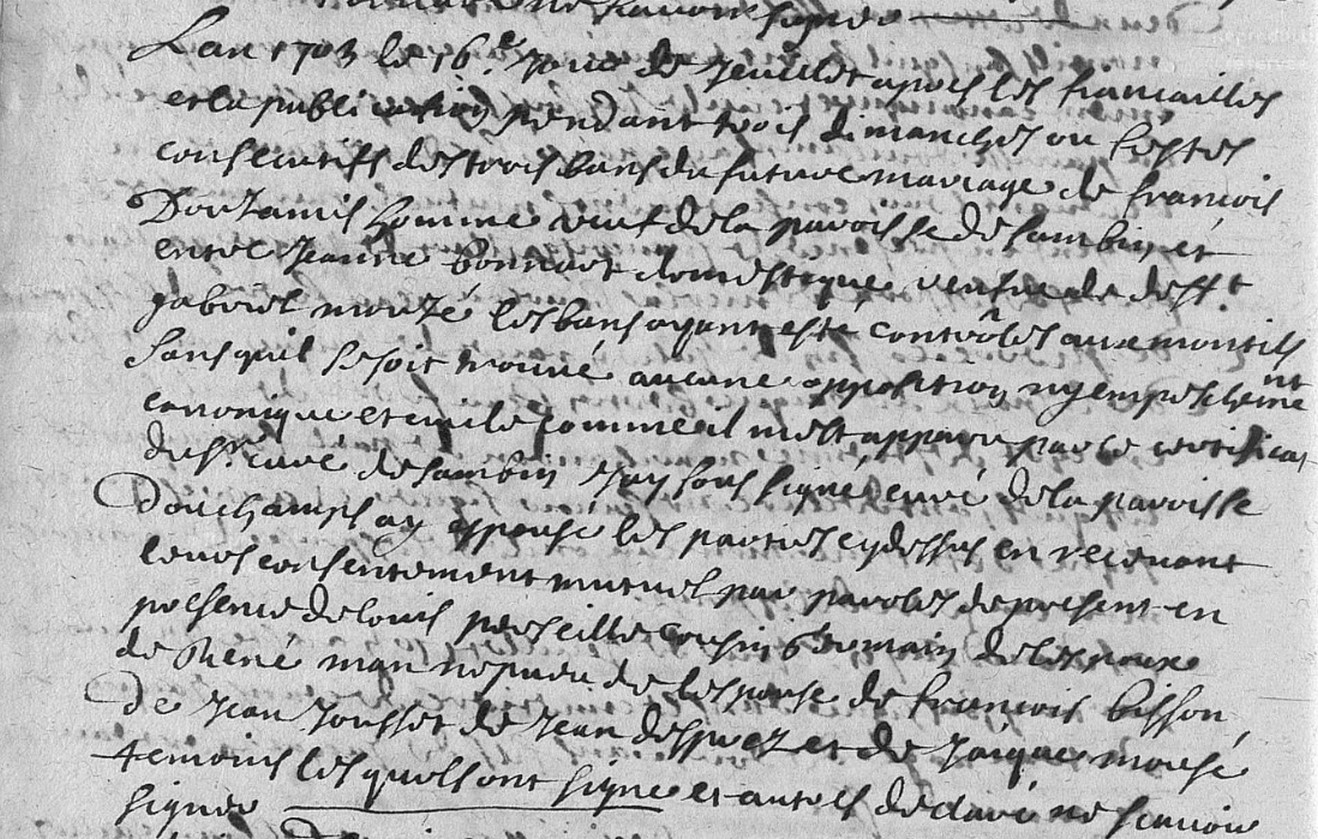 signer
Lan 1703 le 16e. jour de Jeuillet apres les fiancailles
et la publication pendant trois dimanches ou festes
consecutifs des trois bans du futur mariage de francois
homme veuf de la paroisse de sambin et
entre Jeanne bonnart domestique veufve de deff.t
gabriel mouzé les bans ayant esté contrôles aux montils
sans quil se soit trouvé aucune opposition ny empeschemnt
canonique et civile comme il mest apparu par le certificat
du sr. curé de sambin Jay sous signé curé de la paroisse
Douchamps ay epousé les parties cy dessus en recevant
leurs consentement mutuel par paroles de present en
presence de louis perseille cousin germain de lespoux
de René man nepveu de lespouse de francois bisson
De Jean Jousset de Jean desprez et de Jacque mousé
temoins lesquels ont signé et autres declaré ne scavoir
signer